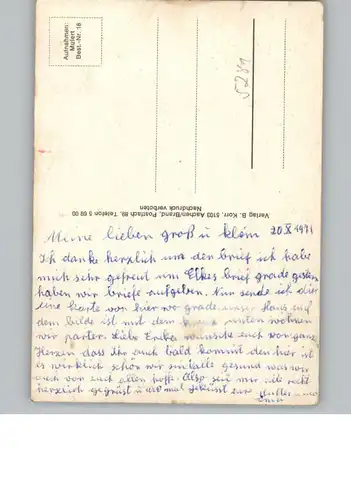 Aufnahmen:
Mulert
Best.-Nr. 18
5281
Verlag B. Korr, 5103 Aachen/Brand, Postfach 89, Telefon 5 69 00
Nachdruck verboten
Meine lieben groß u klein 20 X 1971
Ich danke herzlich um der brief ich habe
mich sehr gefreut um Elkes brief grade gestern
haben wir briefe aufgeben. Nun sende ich dier
eine karte von hier wo grade unser Haus auf
dem bilde ist mit dem unten wohnen
wir parter. Liebe Erika wünsche euch von ganz
Herzen dass ihr auch bald kommt den hier ist
es wirklich schön wir sind alle gesund was wir
auch von euch allen hoffe. Also seit mir alle recht
herzlich gegrüst u mal geküsst eure
Oma